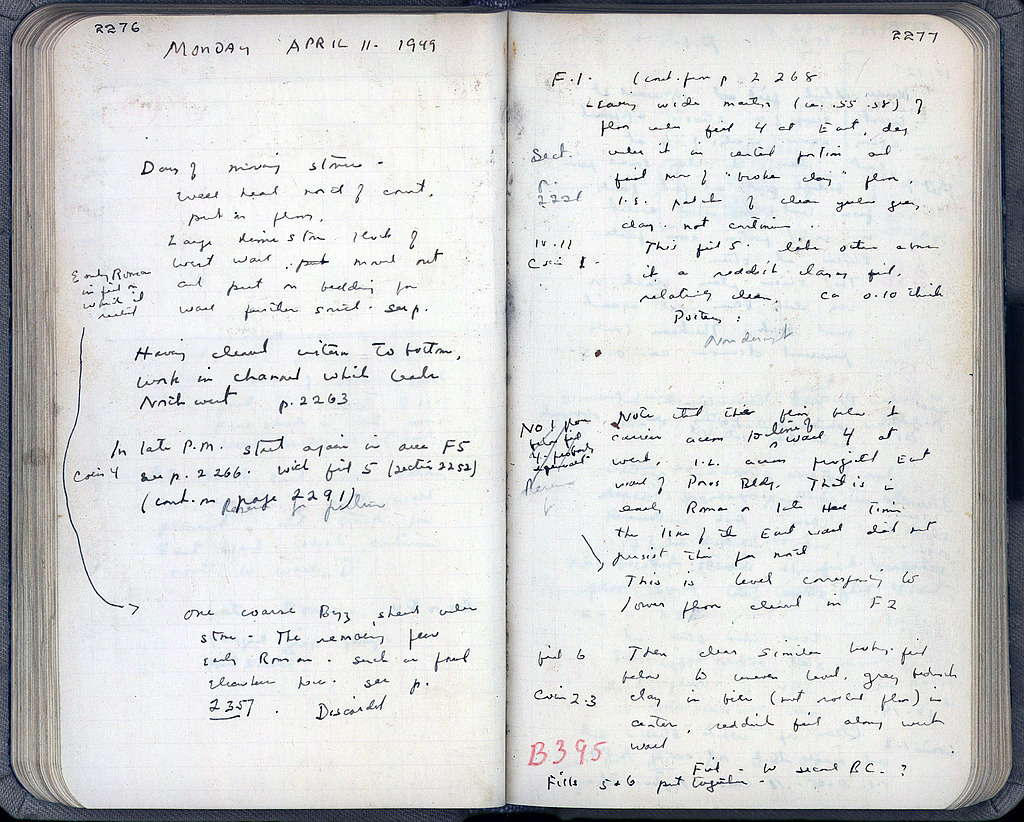 2276
MONDAY APRIL 11. 1949
Day of moving stones -
west of court,
put in floor.
Large limestone block of
west wall, moved out
and put on bedding for
wall further south. see p.
Early Roman
in fill on
which it
rested
Having cleared cistern to bottom,
work in channel which leads
North west p. 2263
In late P.M. start again in area F5
Coin 4 see p. 2266. with fill 5 (section 2252)
(cont. on page 2291)
One coarse Byz. sherd under
stone - The remaining few
early Roman. such as found
elsewhere here. see p.
2357. Discarded
2277
F.1. (cont. from p 2268
Leaving wide (ca. .55 .58) of
floor under fill 4 at East, dig
under it in central portion and
find more of "broken clay" floor,
Sect.
p.
i.e. patch of clean
clay. not
IV.11
Coin 1.
This fill 5. like others above
it a reddish clayey fill,
relatively clean, ca 0.10 thick
Pottery:
Nondescript
Note that this floor below it
carries across line of wall 4 at
west, i.e. across projected East
wall of Poros Bldg. That is in
early Roman or late Hell Times
the line of the East wall did not
persist this far north
This is level corresponding to
lower floor cleared in F2
fill 6 Then clear similar fill
below to uneven level, grey
Coin 2.3 clay in (not rolled floor) in
center, reddish fill along north
wall
B395
Fill - to second B.C. ?
Fills 5+6 put together -